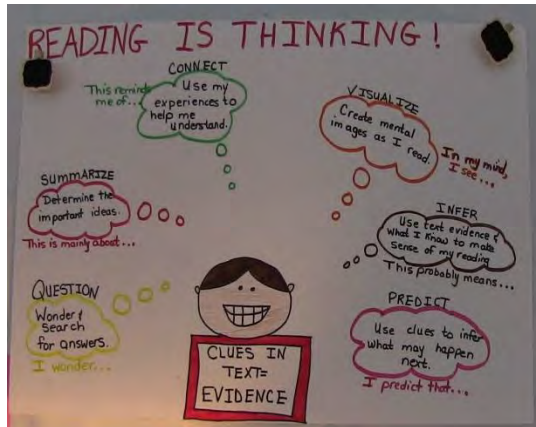 READING IS THINKING!
CONNECT
This reminds
me of...
Use my
experiences to
help me
understand.
VISUALIZE
Create mental
images as I
read.
In my mind,
I see...
SUMMARIZE
Determine the
important ideas.
This is mainly about...
INFER
Use text evidence &
what I know to make
sense of my reading
This probably means...
QUESTION
Wonder &
Search
for answers.
I wonder...
PREDICT
Use clues to infer
what may happen
next.
I predict that...
CLUES IN
TEXT=
EVIDENCE